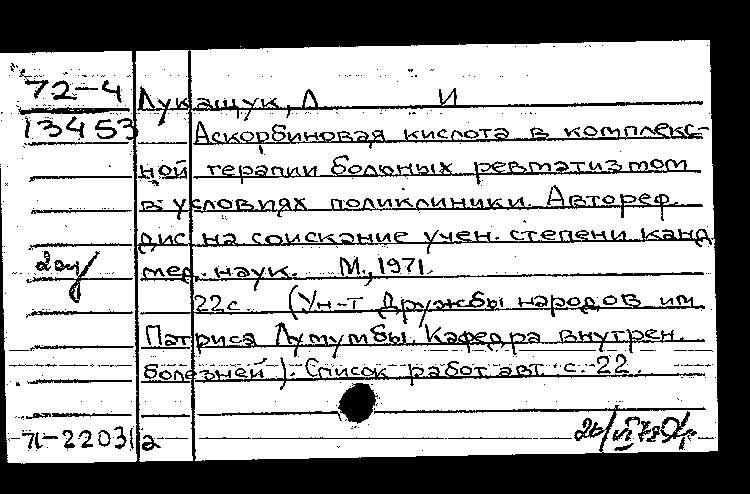 72-4
13453
Лукащук, Л И
Аскорбиновая кислота в комплекс-
ной терапии больных ревматизмом
в условиях поликлиники. Автореф.
дис. на соискание учен. степени канд.
мед. наук. М., 1971.
22 с. (Ун-т Дружбы народов им.
Патриса Лумумбы. Кафедра внутрен.
болезней). Список работ авт. с. 22.
71-22031а